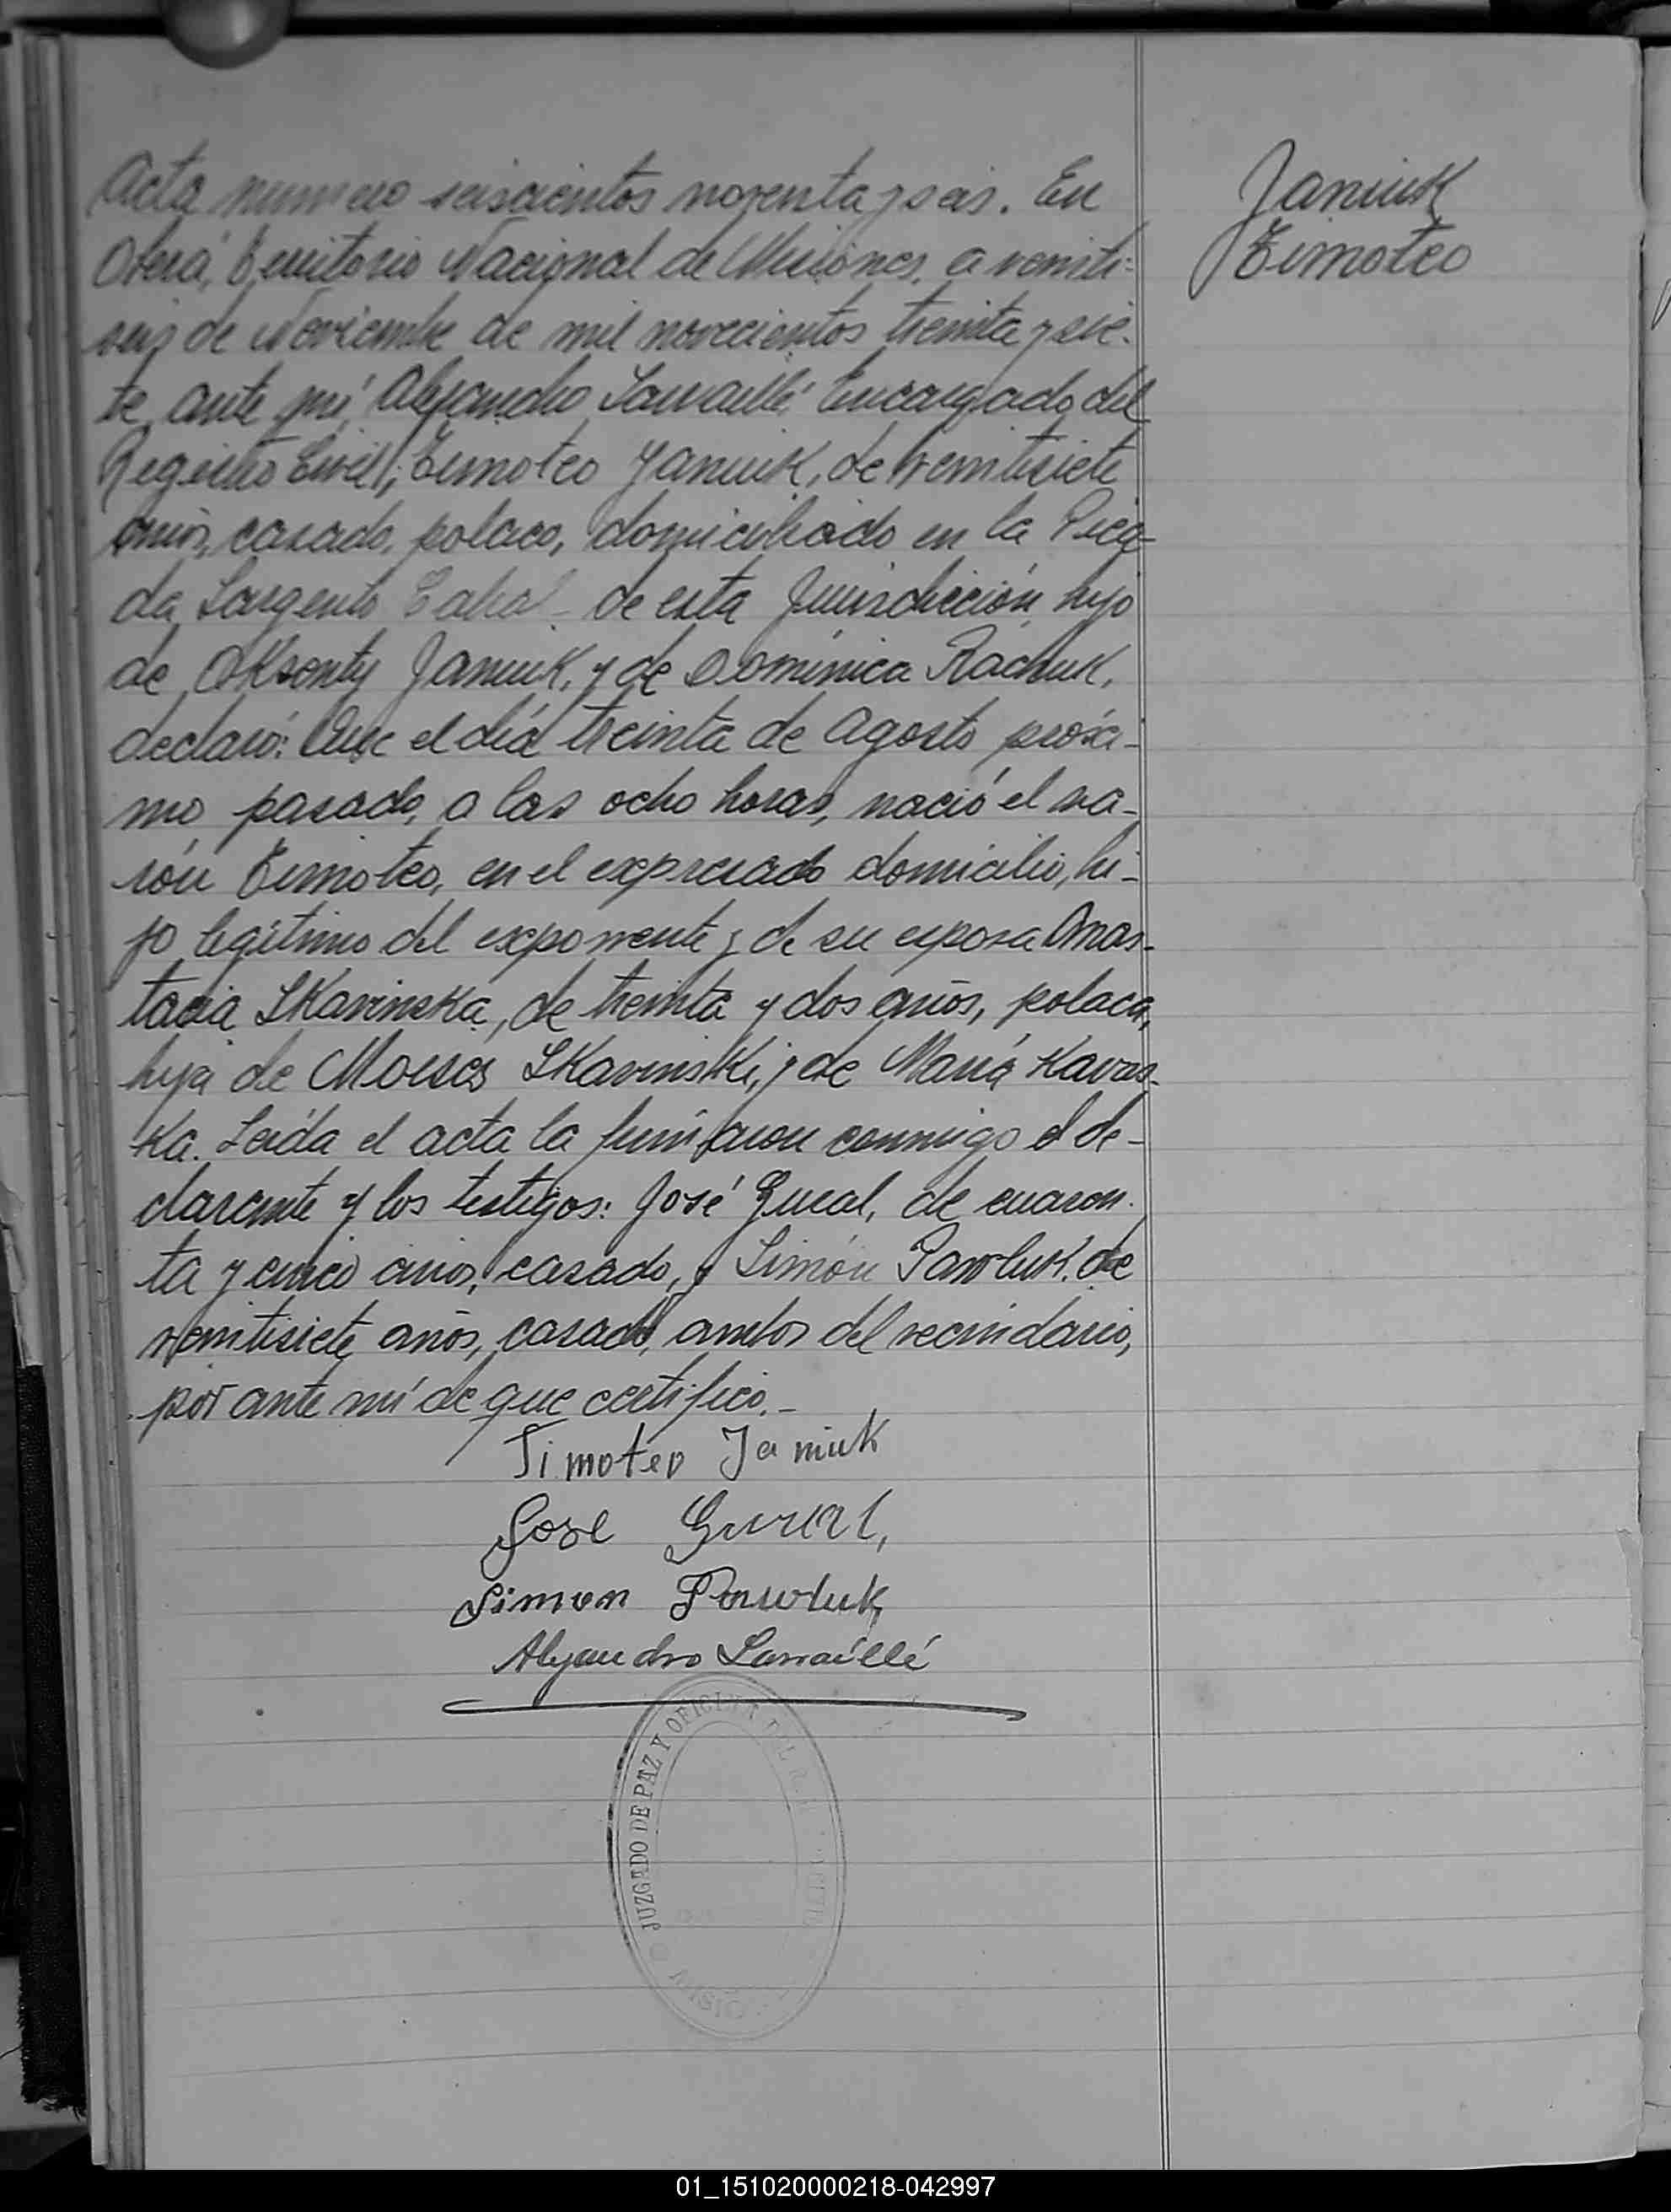 Acta numero seiscientos noventa y seis. En
Oberá, Territorio Nacional de Misiones, a veinti-
seis de Noviembre de mil novecientos treinta y sie-
te, ante mí Alejandro Larraillé Encargado del
Registro Civil, Timoteo Janiuk, de veintisiete
años, casado, polaco, domiciliado en la Pica-
da Sargento Cabral de esta Jurisdicción, hijo
de Oksenty Janiuk, y de Dominica Rachuk,
declaró: Que el día treinta de Agosto próxi-
mo pasado, a las ocho horas, nació el va-
rón Timoteo, en el expresado domicilio, hi-
jo legítimo del exponente y de su esposa Anas-
tacia Skavinska, de treinta y dos años, polaca,
hija de Moises Skavinski, y de María Kavas-
ka. Leída el acta la firmaron conmigo el de-
clarante y los testigos: José Gural, de cuaren-
ta y cinco años, casado, y Simón Pawluk, de
veintisiete años, casado, ambos del vecindario,
por ante mí de que certifico.-
Timoteo Janiuk
Jose Gural,
Simon Pawluk
Alejandro Larraillé
JUZGADO DE PAZ Y OFICINA DEL
Janiuk
Timoteo
01_151020000218-042997